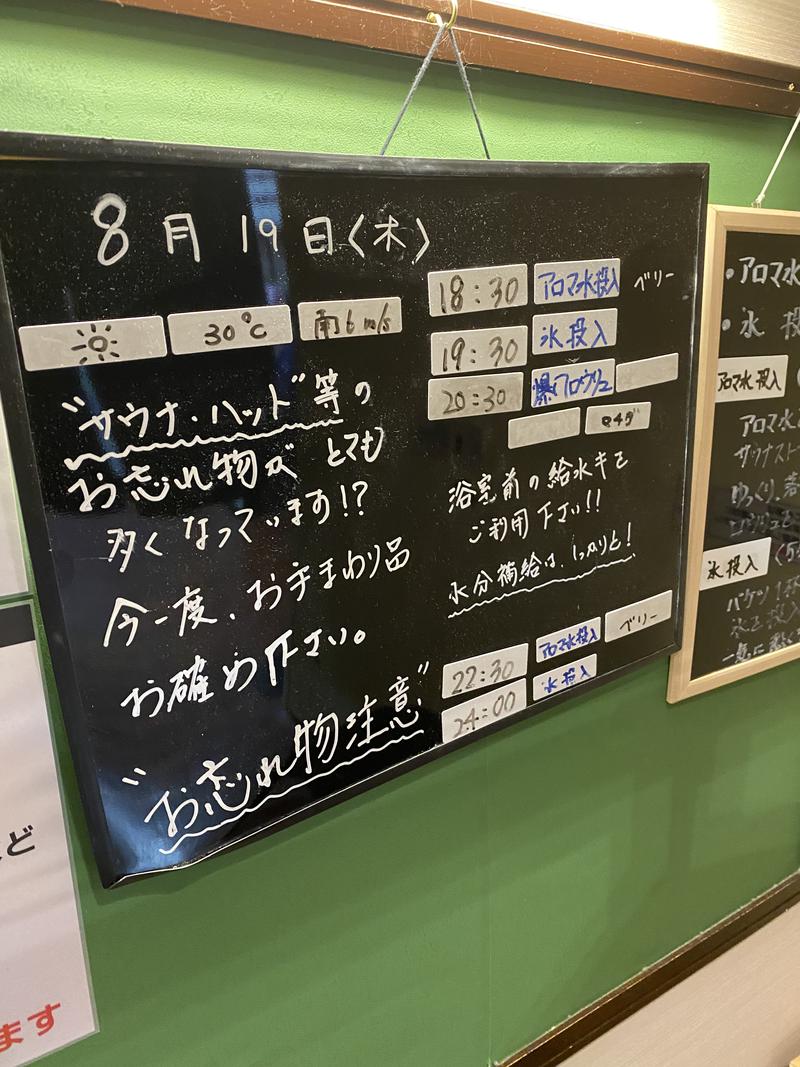 8月19日〈木〉
30℃ 南6m/s
"サウナ・ハット"等の
お忘れ物が とても
多くなっています!?
今一度、お手まわり品
お確め下さい。
"お忘れ物注意"
18:30 アロマ水投入 ベリー
19:30 氷投入
20:30 爆アロウリュ
浴室前の給水キを
ご利用下さい!!
水分補給は、しっかりと!
22:30 アロマ水投入 ベリー
24:00 氷投入
・アロマ水
・氷 投
アロマ水投入
アロマ水
サウナスト
ゆっくり、
氷投入
バケツ1杯
氷を投入
ど
ます